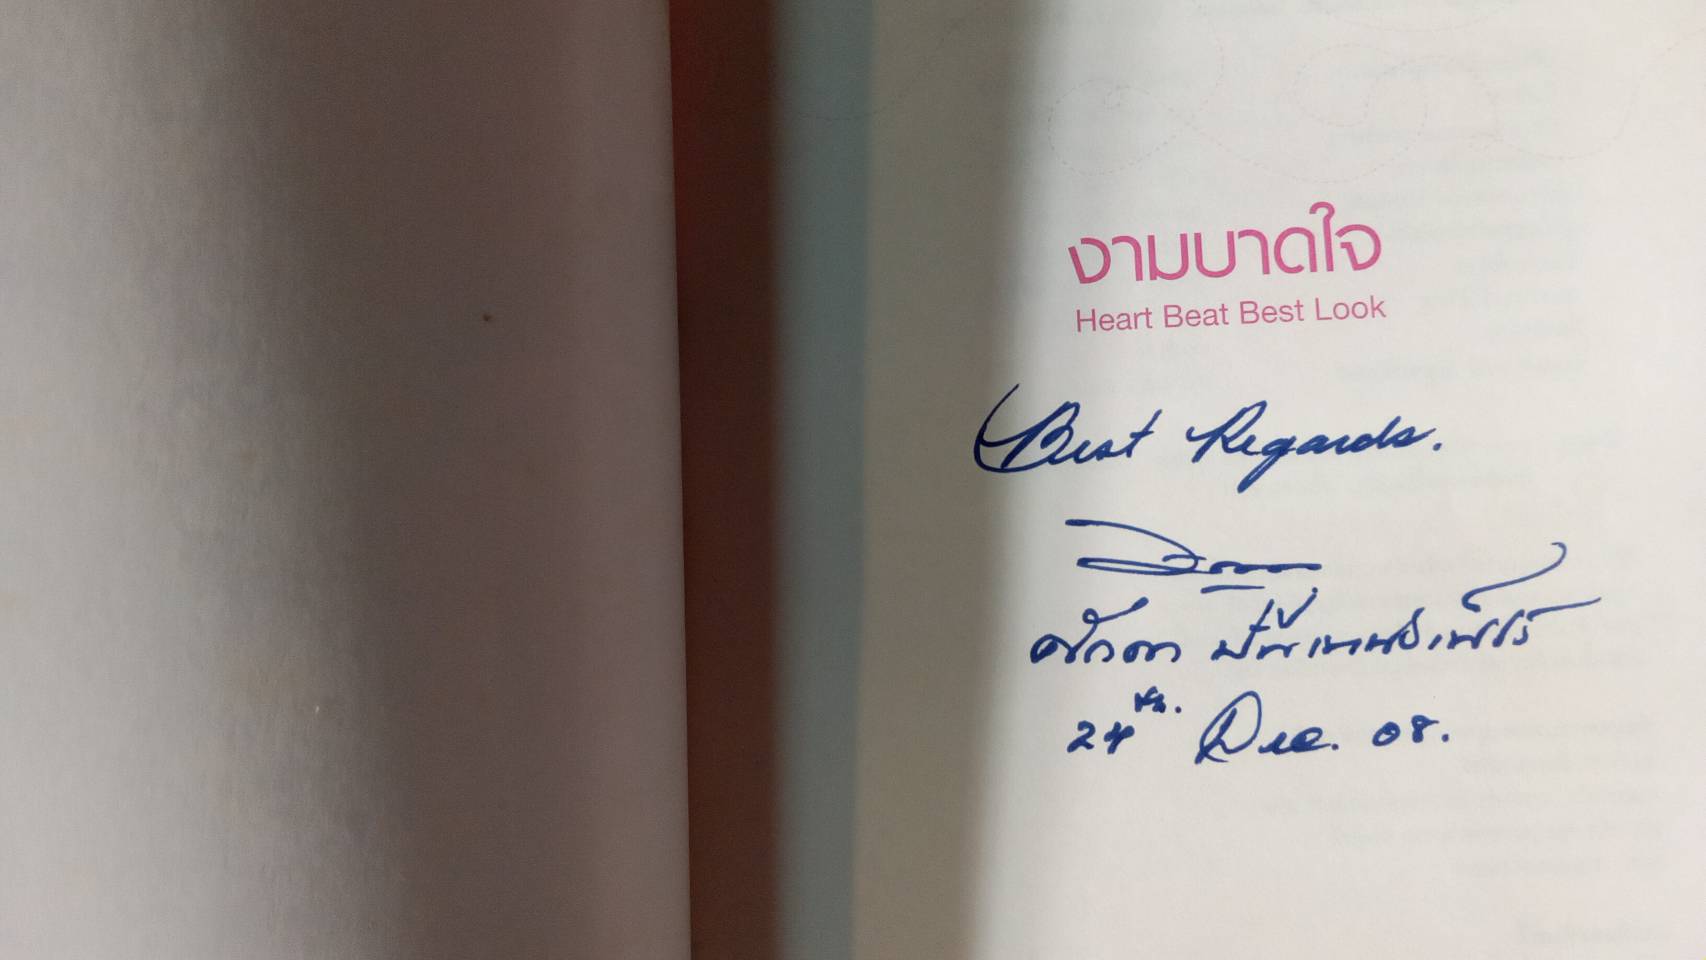 งามบาดใจ
Heart Beat Best Look
Best Regards.
24th. Dec. 08.